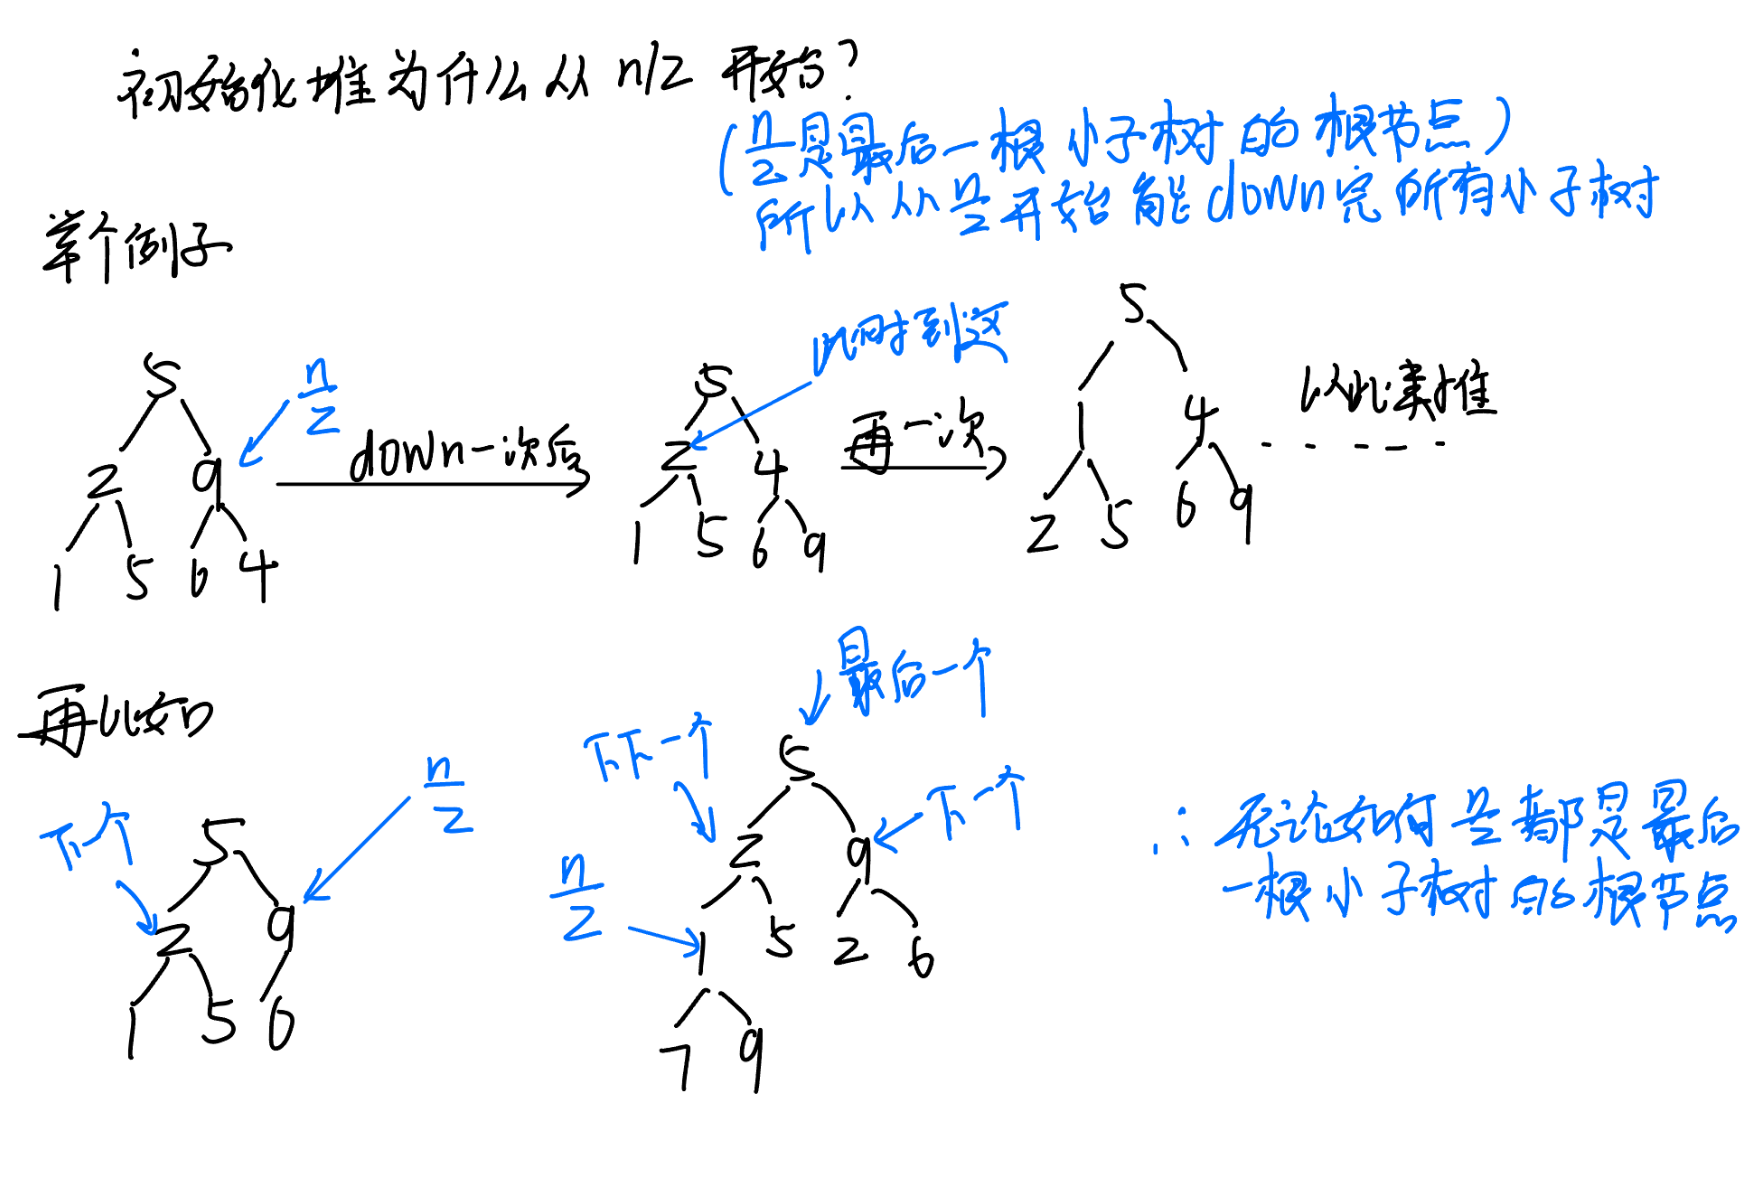 初始化堆为什么从 n/2 开始？
(n/2是最后一根小子树的根节点)
所以从n/2开始能down完所有小子树
举个例子
5
n/2
2 9
1 5 6 4
down一次后
此时到这
5
2 4
1 5 6 9
再一次
5
1 4
2 5 6 9
以此类推
再比如
下个
n/2
5
2 9
1 5 6
最后一个
下下一个
下一个
n/2
5
2 9
1 5 2 6
7 9
∴无论如何n/2都是最后
一根小子树的根节点